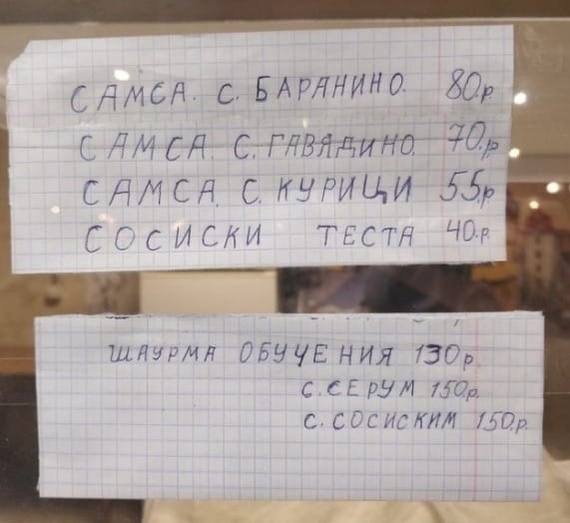 САМСА. С. БАРАНИНО. 80.р
САМСА С. ГАВЯДИНО. 70.р
САМСА. С. КУРИЦИ 55.р
СОСИСКИ ТЕСТА 40.р
ШАУРМА ОБУЧЕНИЯ 130р.
С. СЕРУМ 150.р.
С. СОСИСКИМ 150.р.